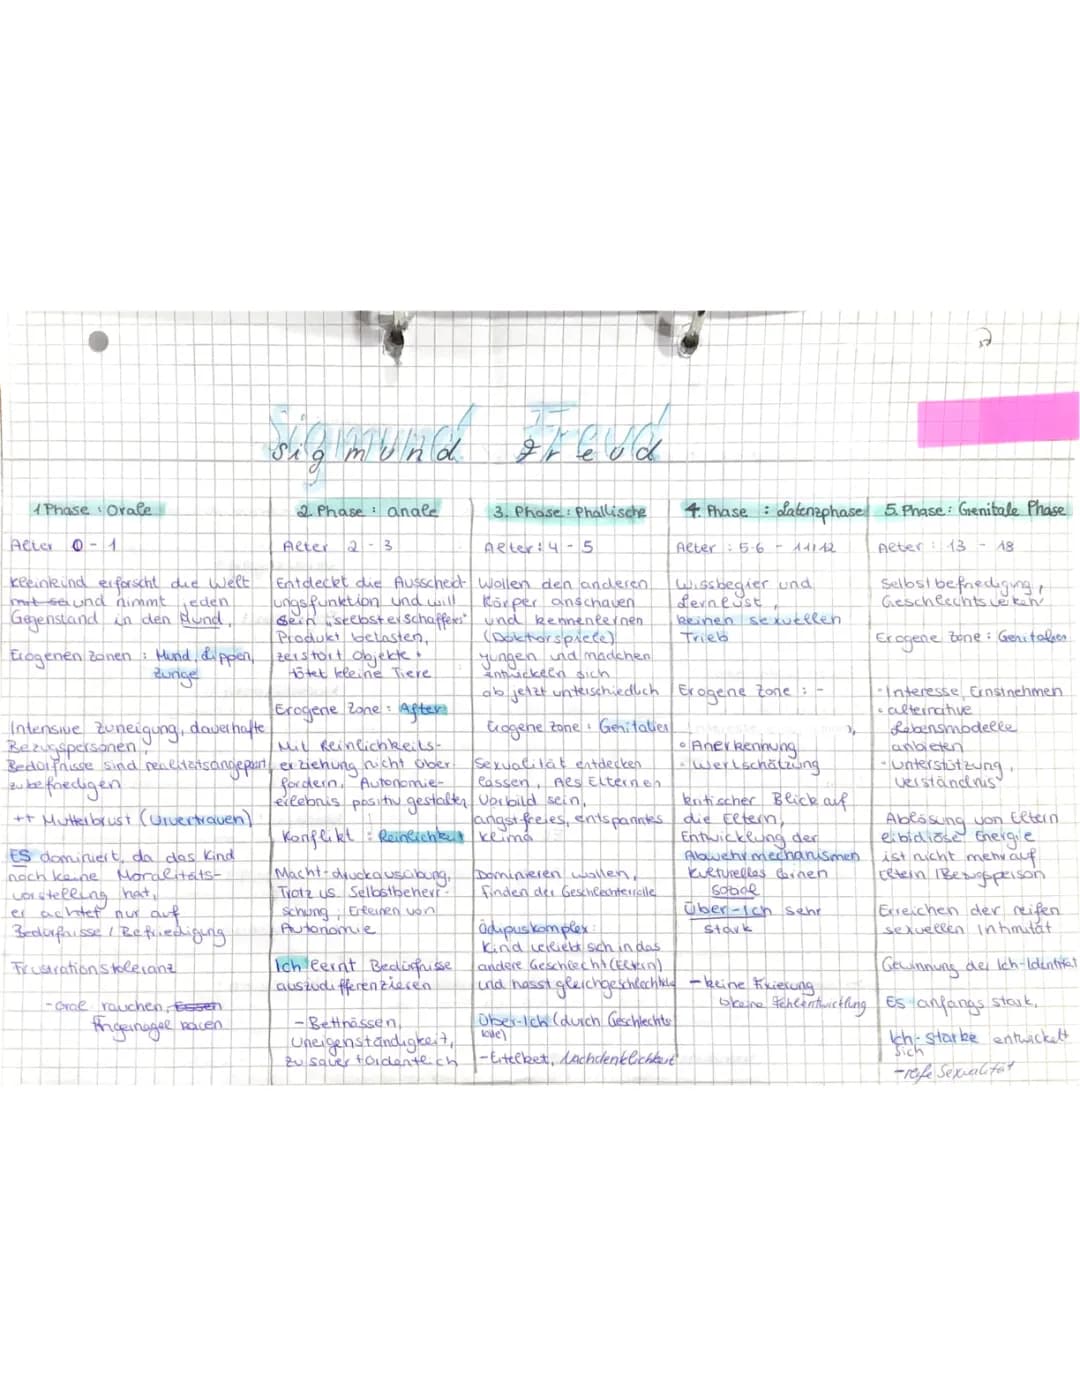 Sigmund Freud
1 Phase : Orale
Alter 0 - 1
Kleinkind erforscht die Welt
mit sei und nimmt jeden
Gegenstand in den Mund,
Erogenen Zonen : Mund, Lippen,
Zunge
Intensive Zuneigung, dauerhafte
Bezugspersonen,
Bedürfnisse sind realitätsangepasst
zu befriedigen
++ Mutterbrust (Urvertrauen)
ES dominiert, da das Kind
noch keine Moralitäts-
vorstellung hat,
er achtet nur auf
Bedürfnisse / Befriedigung
Frustrationstoleranz
- oral rauchen, Essen
Fingernägel kauen
2. Phase : anale
Alter 2 - 3
Entdeckt die Ausscheid-
ungsfunktion und will
sein "selbsterschaffers"
Produkt betasten,
zerstört Objekte,
tötet kleine Tiere
Erogene Zone : After
Mit Reinlichkeits-
erziehung nicht über-
fordern, Autonomie-
erlebnis positiv gestalten
Konflikt : Reinlichkeit
Macht-druckausübung,
Trotz vs. Selbstbeherr-
schung, Erlernen von
Autonomie
Ich lernt Bedürfnisse
auszudifferenzieren
- Bettnässen,
Uneigenständigkeit,
zu sauer
3. Phase : Phallische
Alter : 4 - 5
Wollen den anderen
Körper anschauen
und kennenlernen
(Doktorspiele)
Jungen und mädchen
entwickeln sich
ab jetzt unterschiedlich
Erogene Zone : Genitalien
Sexualität entdecken
lassen, Als Elternen
Vorbild sein,
angstfreies, entspanntes
Klima
Dominieren wollen,
finden der Geschlechterrolle
Ödipuskomplex :
Kind verliebt sich in das
andere Geschlecht (Eltern)
und hasst gleichgeschlechtliche
Über-Ich (durch Geschlechts
rolle)
- Eitelkeit, Nachdenklichkeit
4. Phase : Latenzphase
Alter : 5-6 - 11/12
Wissbegier und
Lernlust,
keinen sexuellen
Trieb
Erogene Zone : -
• Anerkennung
• Wertschätzung
kritischer Blick auf
die Eltern,
Entwicklung der
Abwehrmechanismen
kulturelles
Über-Ich sehr
stark
- keine Fixierung
keine Fehlentwicklung
5. Phase : Genitale Phase
Alter : 13 - 18
Selbstbefriedigung,
Geschlechtsverkehr
Erogene Zone : Genitalien
- Interesse, Ernstnehmen
• alternative
Lebensmodelle
anbieten
- Unterstützung,
Verständnis
Ablösung von Eltern
libidiöse Energie
ist nicht mehr auf
Eltern / Bezugsperson
Erreichen der reifen
sexuellen Intimität
Gewinnung der Ich-Identität
Es anfangs stark,
Ich-stärke entwickelt
sich
- reife Sexualität